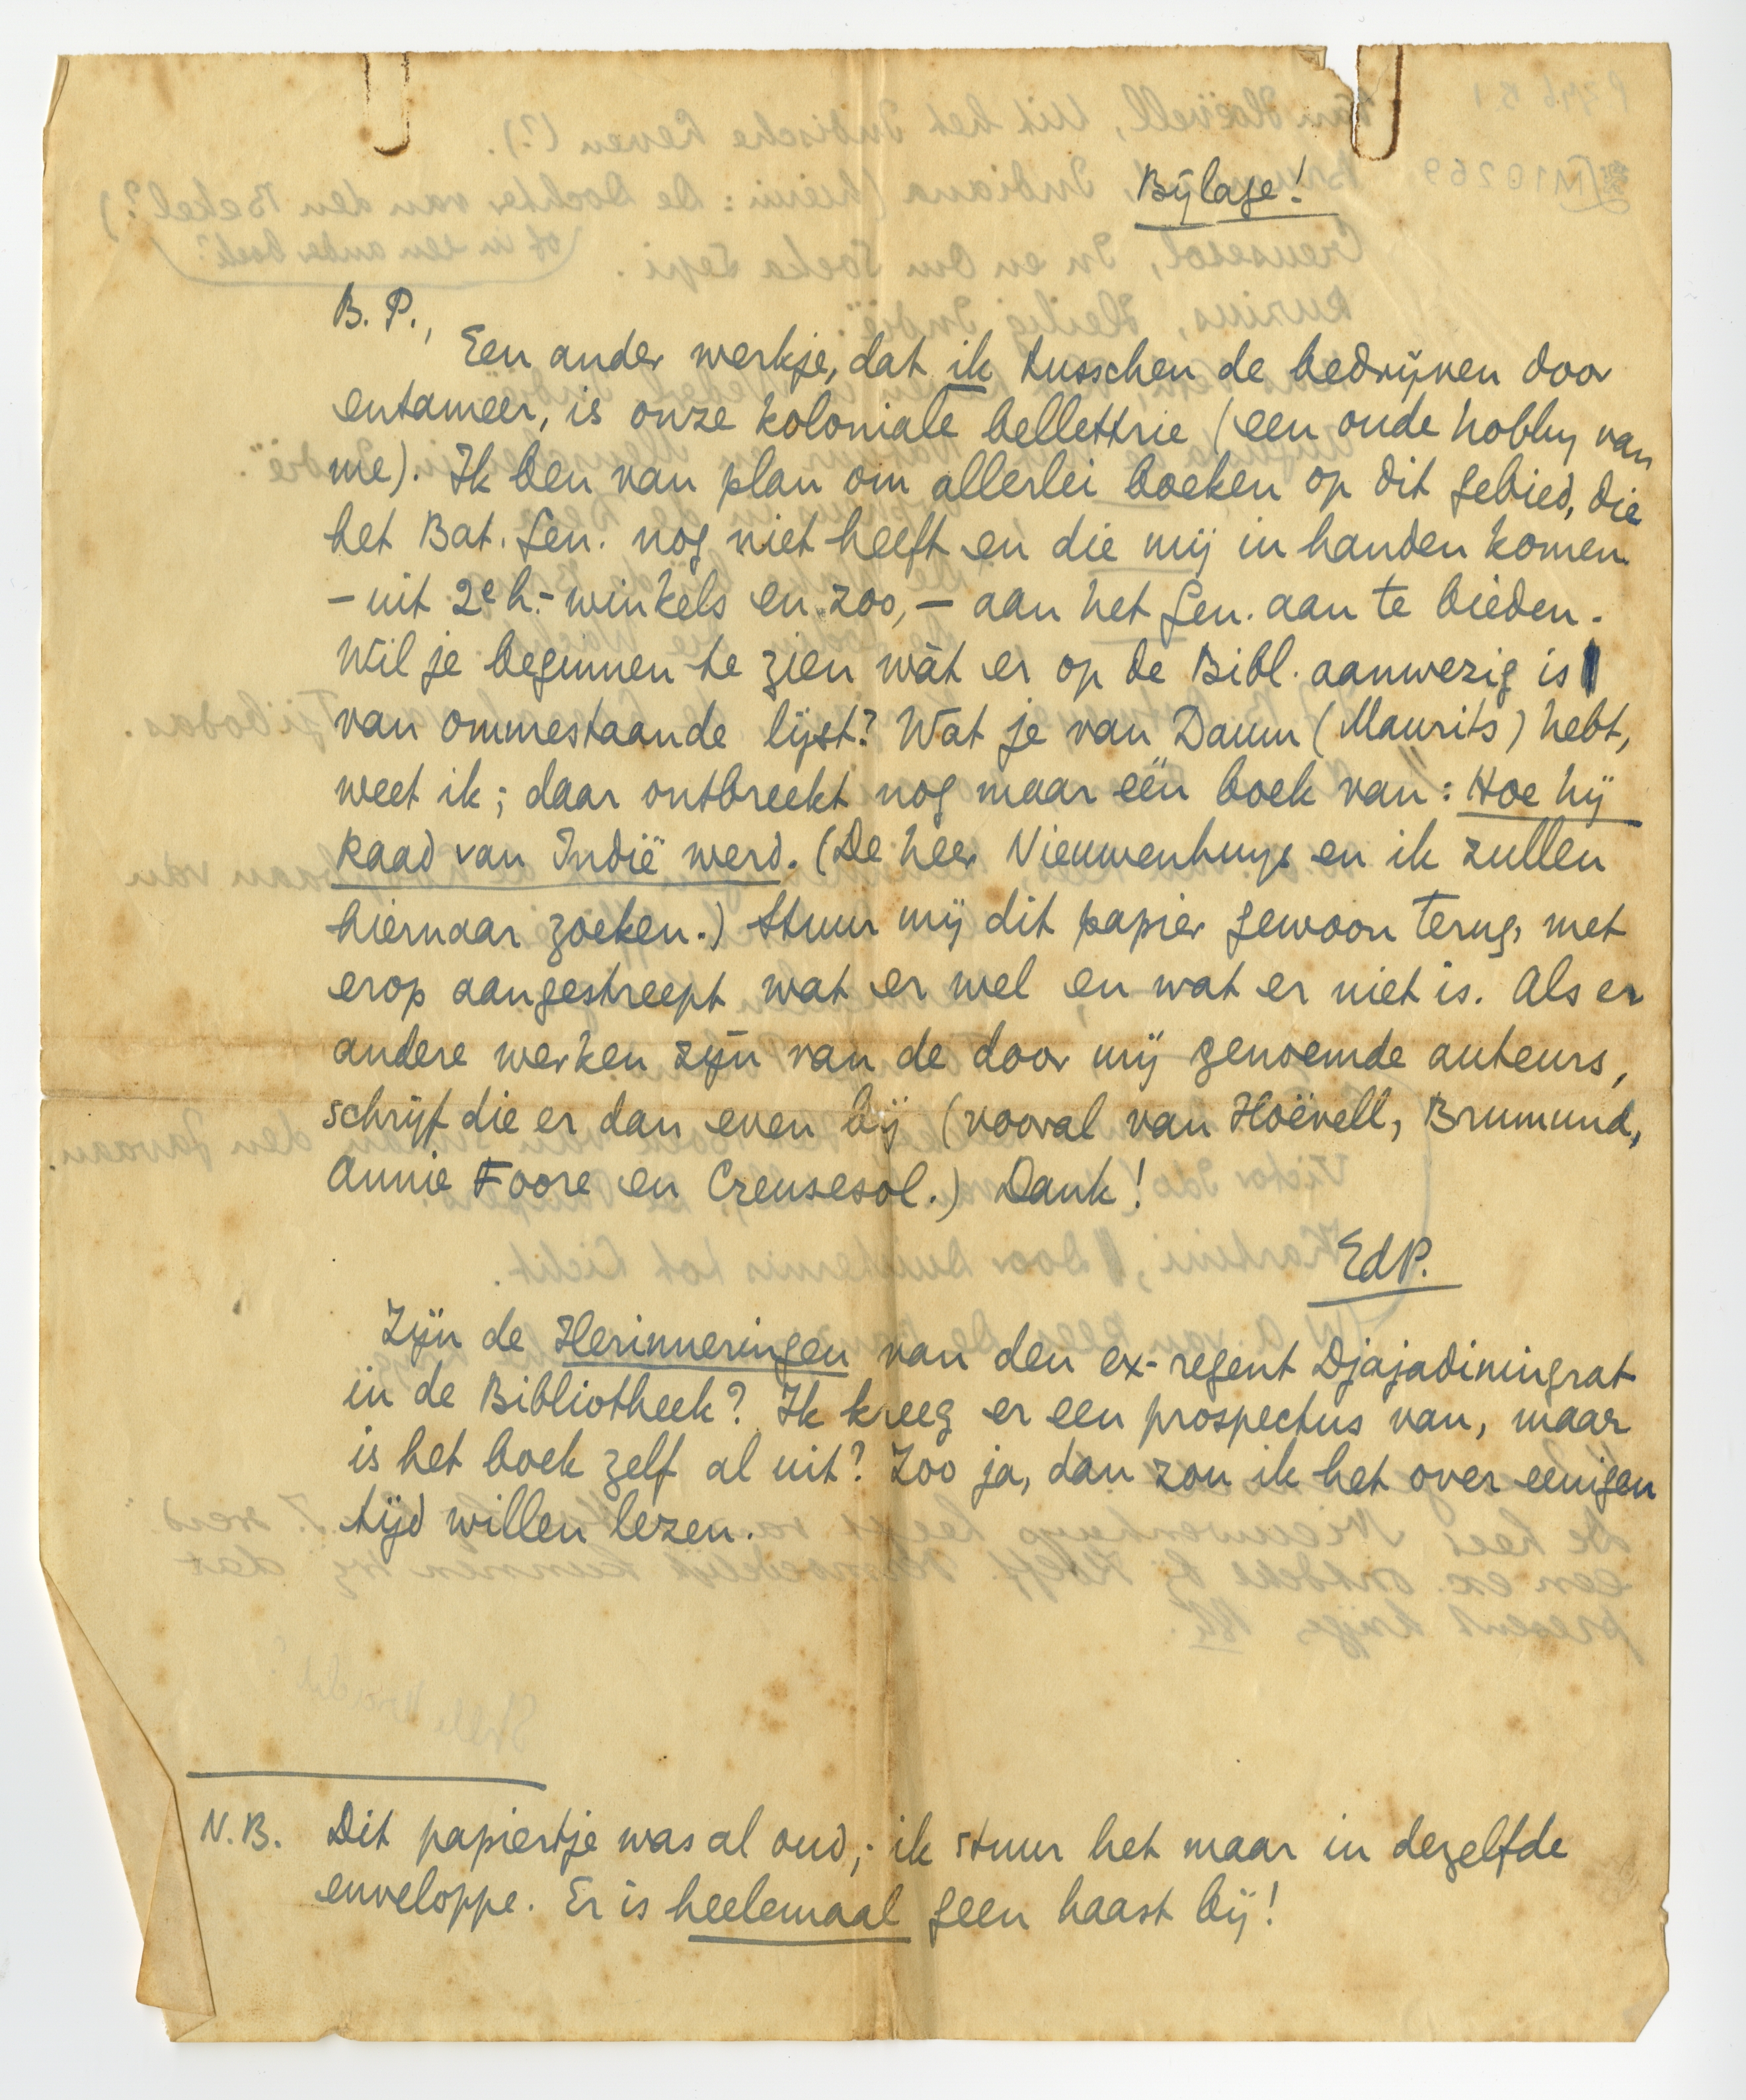 Bijlage!
B. P.,
Een ander werkje, dat ik tusschen de bedrijven door
entameer, is onze koloniale bellettrie (een oude hobby van
me). Ik ben van plan om allerlei boeken op dit gebied, die
het Bat. Gen. nog niet heeft en die mij in handen komen
– uit 2e h.-winkels en zoo, – aan het Gen. aan te bieden.
Wil je beginnen te zien wàt er op de Bibl. aanwezig is
van ommestaande lijst? Wat je van Daum (Maurits) hebt,
weet ik; daar ontbreekt nog maar één boek van: Hoe hij
Raad van Indië werd. (De heer Nieuwenhuys en ik zullen
hiernaar zoeken.) Stuur mij dit papier gewoon terug, met
erop aangestreept wat er wel en wat er niet is. Als er
andere werken zijn van de door mij genoemde auteurs,
schrijf die er dan even bij (vooral van Hoëvell, Brumund,
Annie Foore en Creusesol.) Dank!
EdP.
Zijn de Herinneringen van den ex-regent Djajadiningrat
in de Bibliotheek? Ik kreeg er een prospectus van, maar
is het boek zelf al uit? Zoo ja, dan zou ik het over eenigen
tijd willen lezen.
N.B. Dit papiertje was al oud; ik stuur het maar in dezelfde
enveloppe. Er is heelemaal geen haast bij!